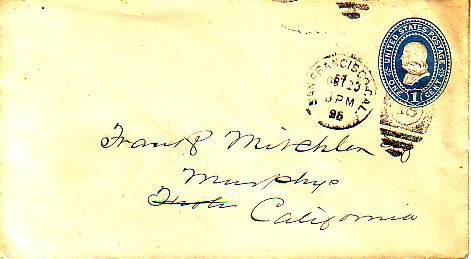 UNITED STATES POSTAGE
ONE 1 CENT
SAN FRANCISCO, CAL.
3 PM
96
Frank P Mitchler
Murphys
California